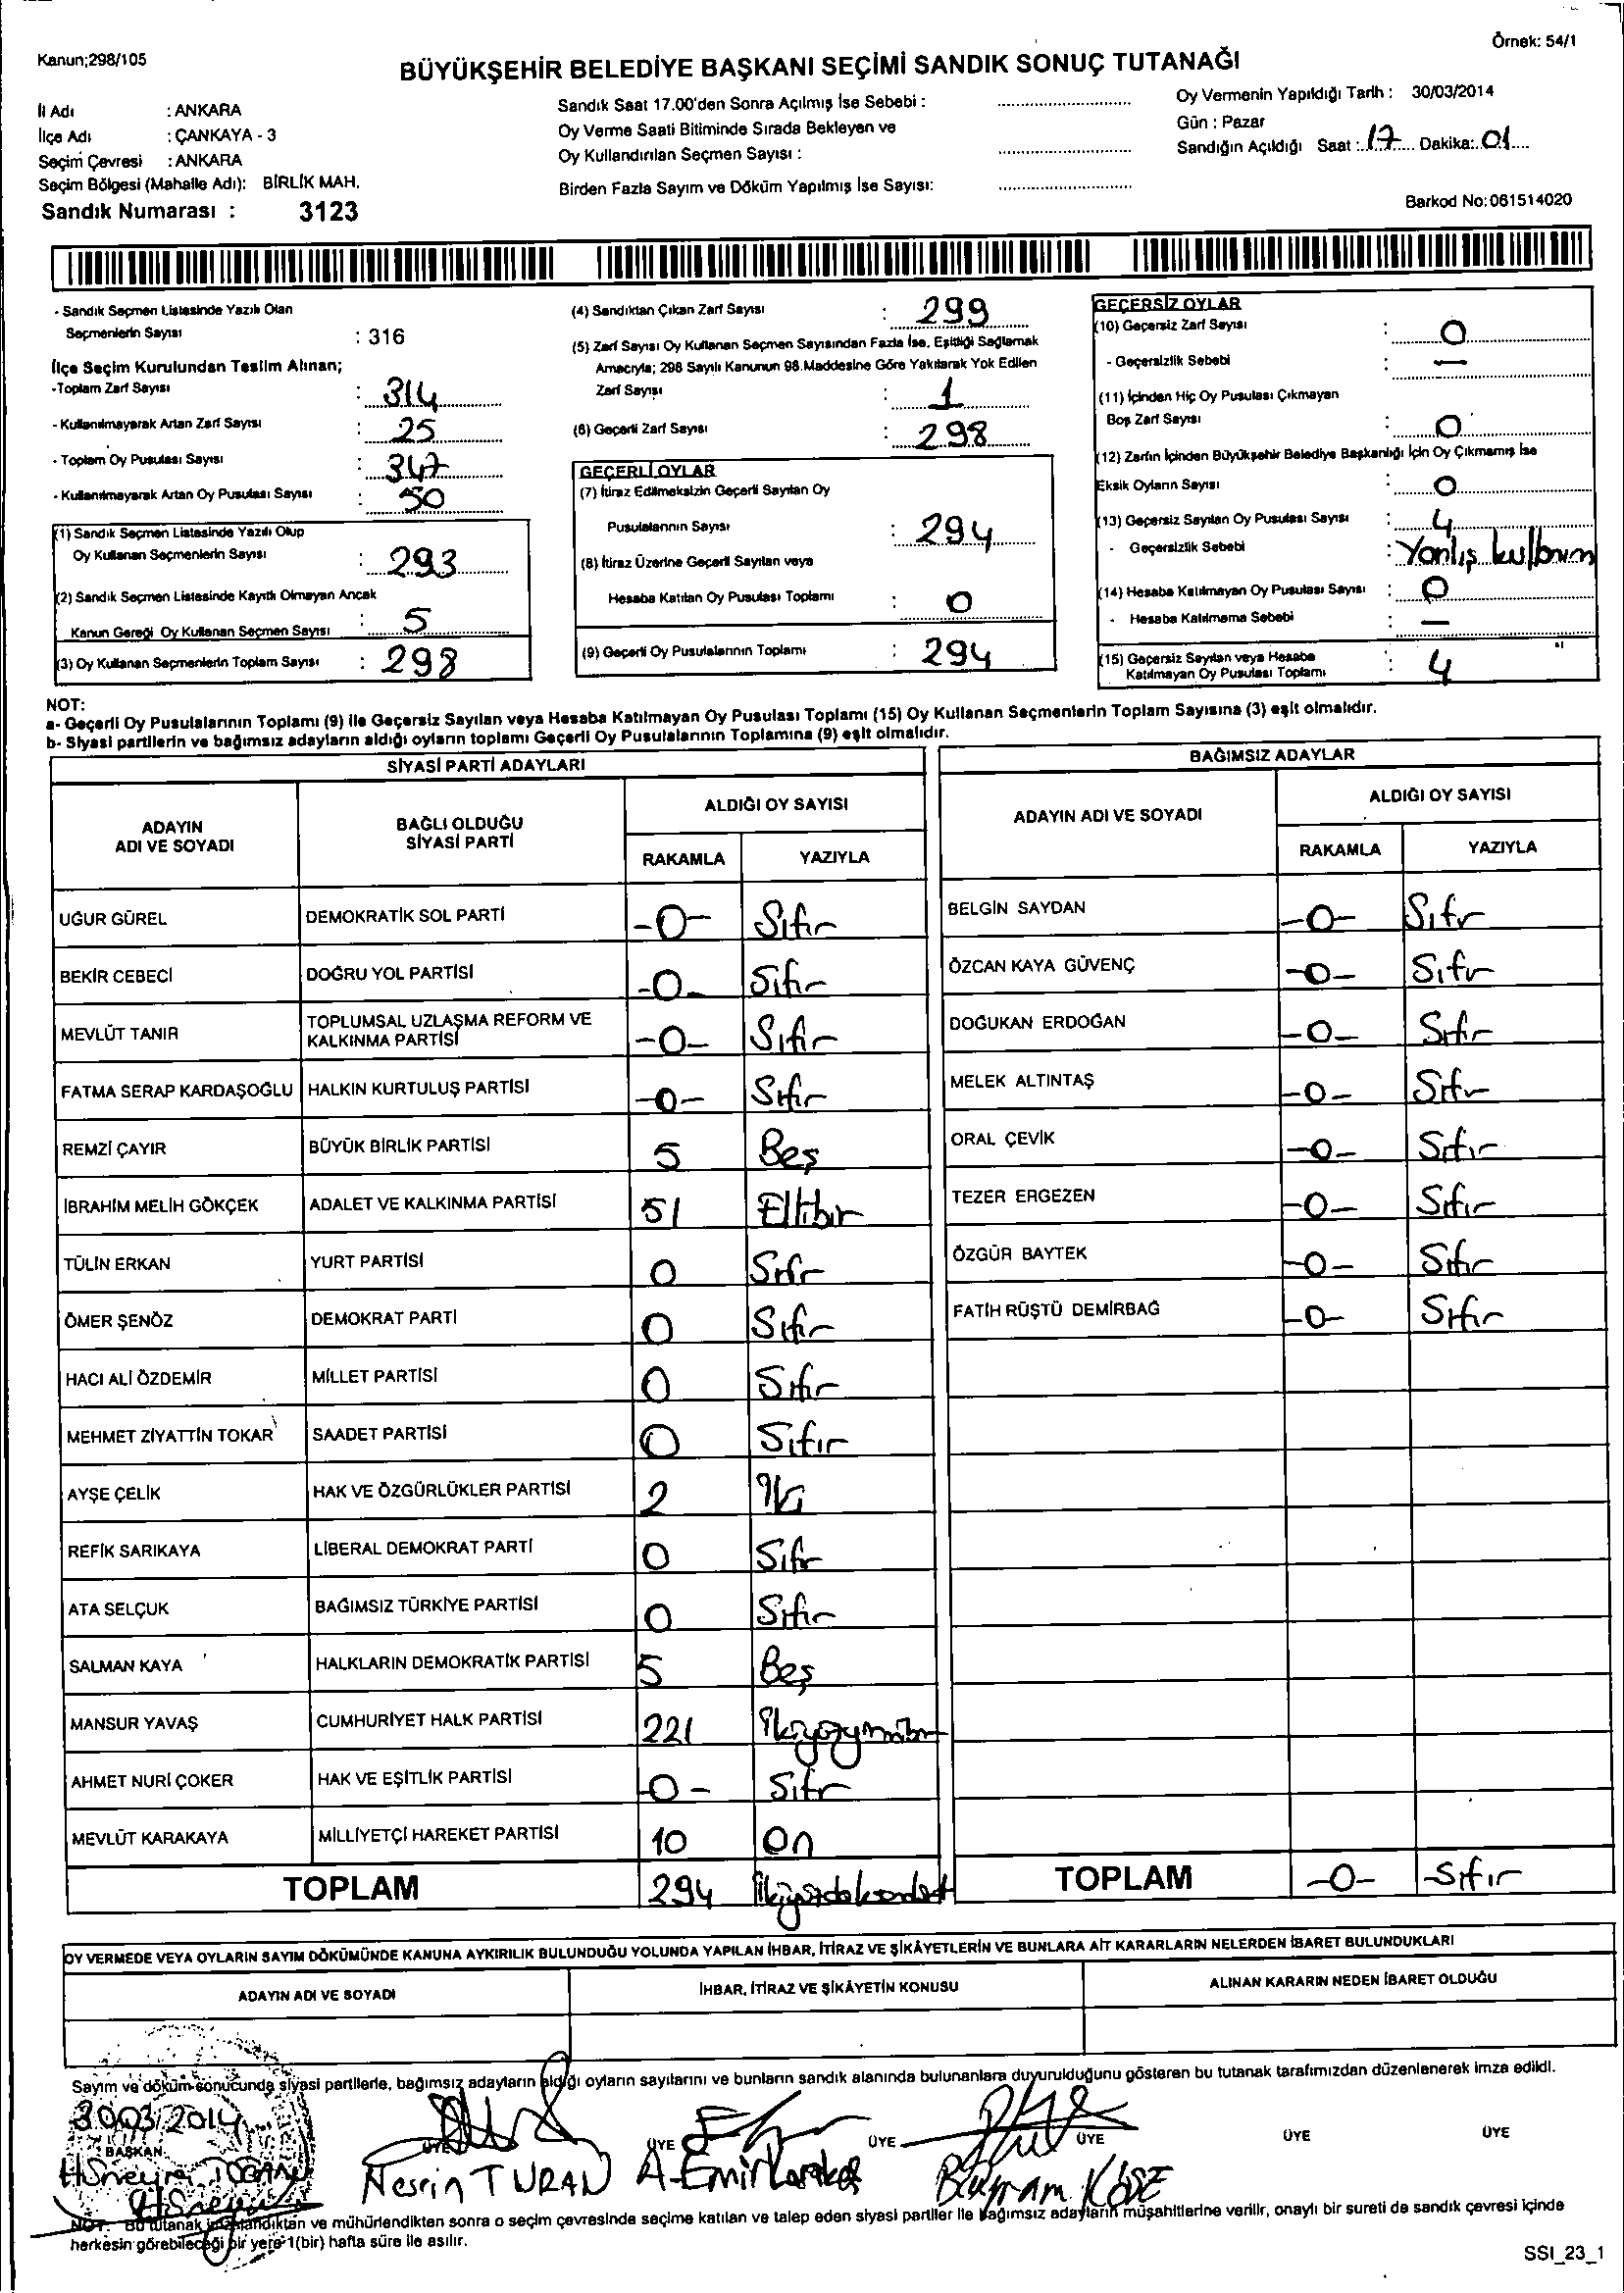 Kanun;298/105
Örnek: 54/1
BÜYÜKŞEHİR BELEDİYE BAŞKANI SEÇİMİ SANDIK SONUÇ TUTANAĞI
İl Adı : ANKARA
İlçe Adı : ÇANKAYA - 3
Seçim Çevresi : ANKARA
Seçim Bölgesi (Mahalle Adı): BİRLİK MAH.
Sandık Numarası : 3123
Sandık Saat 17.00'den Sonra Açılmış İse Sebebi :
Oy Verme Saati Bitiminde Sırada Bekleyen ve
Oy Kullandırılan Seçmen Sayısı :
Birden Fazla Sayım ve Döküm Yapılmış İse Sayısı:
Oy Vermenin Yapıldığı Tarih : 30/03/2014
Gün : Pazar
Sandığın Açıldığı Saat : 17 Dakika: 01
Barkod No: 061514020
- Sandık Seçmen Listesinde Yazılı Olan
Seçmenlerin Sayısı : 316
İlçe Seçim Kurulundan Teslim Alınan;
-Toplam Zarf Sayısı : 314
- Kullanılmayarak Artan Zarf Sayısı : 25
- Toplam Oy Pusulası Sayısı : 347
- Kullanılmayarak Artan Oy Pusulası Sayısı : 50
(1) Sandık Seçmen Listesinde Yazılı Olup
Oy Kullanan Seçmenlerin Sayısı : 293
(2) Sandık Seçmen Listesinde Kayıtlı Olmayan Ancak
Kanun Gereği Oy Kullanan Seçmen Sayısı : 5
(3) Oy Kullanan Seçmenlerin Toplam Sayısı : 298
(4) Sandıktan Çıkan Zarf Sayısı : 299
(5) Zarf Sayısı Oy Kullanan Seçmen Sayısından Fazla İse, Eşitliği Sağlamak
Amacıyla; 298 Sayılı Kanunun 98.Maddesine Göre Yakılarak Yok Edilen
Zarf Sayısı : 1
(6) Geçerli Zarf Sayısı : 298
GEÇERLİ OYLAR
(7) İtiraz Edilmeksizin Geçerli Sayılan Oy
Pusulalarının Sayısı : 294
(8) İtiraz Üzerine Geçerli Sayılan veya
Hesaba Katılan Oy Pusulası Toplamı : 0
(9) Geçerli Oy Pusulalarının Toplamı : 294
GEÇERSİZ OYLAR
(10) Geçersiz Zarf Sayısı : 0
- Geçersizlik Sebebi : —
(11) İçinden Hiç Oy Pusulası Çıkmayan
Boş Zarf Sayısı : 0
(12) Zarfın İçinden Büyükşehir Belediye Başkanlığı İçin Oy Çıkmamış İse
Eksik Oyların Sayısı : 0
(13) Geçersiz Sayılan Oy Pusulası Sayısı : 4
- Geçersizlik Sebebi : Yanlış
(14) Hesaba Katılmayan Oy Pusulası Sayısı : 0
- Hesaba Katılmama Sebebi : —
(15) Geçersiz Sayılan veya Hesaba
Katılmayan Oy Pusulası Toplamı : 4
NOT:
a- Geçerli Oy Pusulalarının Toplamı (9) ile Geçersiz Sayılan veya Hesaba Katılmayan Oy Pusulası Toplamı (15) Oy Kullanan Seçmenlerin Toplam Sayısına (3) eşit olmalıdır.
b- Siyasi partilerin ve bağımsız adayların aldığı oyların toplamı Geçerli Oy Pusulalarının Toplamına (9) eşit olmalıdır.
SİYASİ PARTİ ADAYLARI
ADAYIN ADI VE SOYADI
BAĞLI OLDUĞU SİYASİ PARTİ
ALDIĞI OY SAYISI
RAKAMLA YAZIYLA
UĞUR GÜREL DEMOKRATİK SOL PARTİ -0- Sıfır
BEKİR CEBECİ DOĞRU YOL PARTİSİ -0- Sıfır
MEVLÜT TANIR TOPLUMSAL UZLAŞMA REFORM VE
KALKINMA PARTİSİ -0- Sıfır
FATMA SERAP KARDAŞOĞLU HALKIN KURTULUŞ PARTİSİ -0- Sıfır
REMZİ ÇAYIR BÜYÜK BİRLİK PARTİSİ 5 Beş
İBRAHİM MELİH GÖKÇEK ADALET VE KALKINMA PARTİSİ 51 Ellibir
TÜLİN ERKAN YURT PARTİSİ 0 Sıfır
ÖMER ŞENÖZ DEMOKRAT PARTİ 0 Sıfır
HACI ALİ ÖZDEMİR MİLLET PARTİSİ 0 Sıfır
MEHMET ZİYATTİN TOKAR SAADET PARTİSİ 0 Sıfır
AYŞE ÇELİK HAK VE ÖZGÜRLÜKLER PARTİSİ 2 İki
REFİK SARIKAYA LİBERAL DEMOKRAT PARTİ 0 Sıfır
ATA SELÇUK BAĞIMSIZ TÜRKİYE PARTİSİ 0 Sıfır
SALMAN KAYA HALKLARIN DEMOKRATİK PARTİSİ 5 Beş
MANSUR YAVAŞ CUMHURİYET HALK PARTİSİ 221 İkiyüzyirmibir
AHMET NURİ ÇOKER HAK VE EŞİTLİK PARTİSİ -0- Sıfır
MEVLÜT KARAKAYA MİLLİYETÇİ HAREKET PARTİSİ 10 On
TOPLAM 294 İkiyüzdoksandört
BAĞIMSIZ ADAYLAR
ADAYIN ADI VE SOYADI
ALDIĞI OY SAYISI
RAKAMLA YAZIYLA
BELGİN SAYDAN -0- Sıfır
ÖZCAN KAYA GÜVENÇ -0- Sıfır
DOĞUKAN ERDOĞAN -0- Sıfır
MELEK ALTINTAŞ -0- Sıfır
ORAL ÇEVİK -0- Sıfır
TEZER ERGEZEN -0- Sıfır
ÖZGÜR BAYTEK -0- Sıfır
FATİH RÜŞTÜ DEMİRBAĞ -0- Sıfır
TOPLAM -0- Sıfır
OY VERMEDE VEYA OYLARIN SAYIM DÖKÜMÜNDE KANUNA AYKIRILIK BULUNDUĞU YOLUNDA YAPILAN İHBAR, İTİRAZ VE ŞİKÂYETLERİN VE BUNLARA AİT KARARLARIN NELERDEN İBARET BULUNDUKLARI
ADAYIN ADI VE SOYADI
İHBAR, İTİRAZ VE ŞİKÂYETİN KONUSU
ALINAN KARARIN NEDEN İBARET OLDUĞU
Sayım ve döküm sonucunda siyasi partilerle, bağımsız adayların aldığı oyların sayılarını ve bunların sandık alanında bulunanlara duyurulduğunu gösteren bu tutanak tarafımızdan düzenlenerek imza edildi.
30.03/2014
BAŞKAN ÜYE ÜYE ÜYE ÜYE ÜYE ÜYE
Nesrin TURAN
Bayram KÖSE
NOT: Bu tutanak imzalandıktan ve mühürlendikten sonra o seçim çevresinde seçime katılan ve talep eden siyasi partiler ile bağımsız adayların müşahitlerine verilir, onaylı bir sureti de sandık çevresi içinde
herkesin görebileceği bir yere 1(bir) hafta süre ile asılır.
SSI_23_1